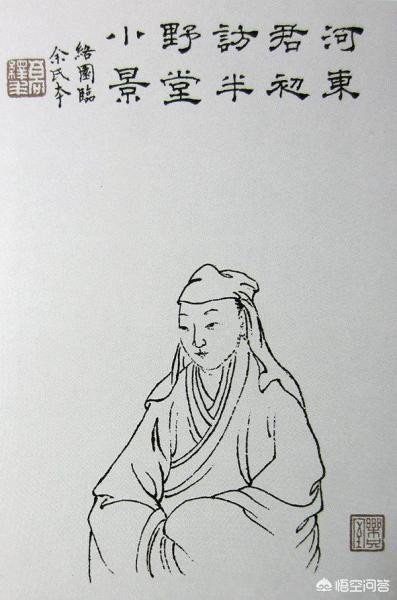 河東
君初
訪半
野堂
小景
絡園臨
余氏本
悟空问答